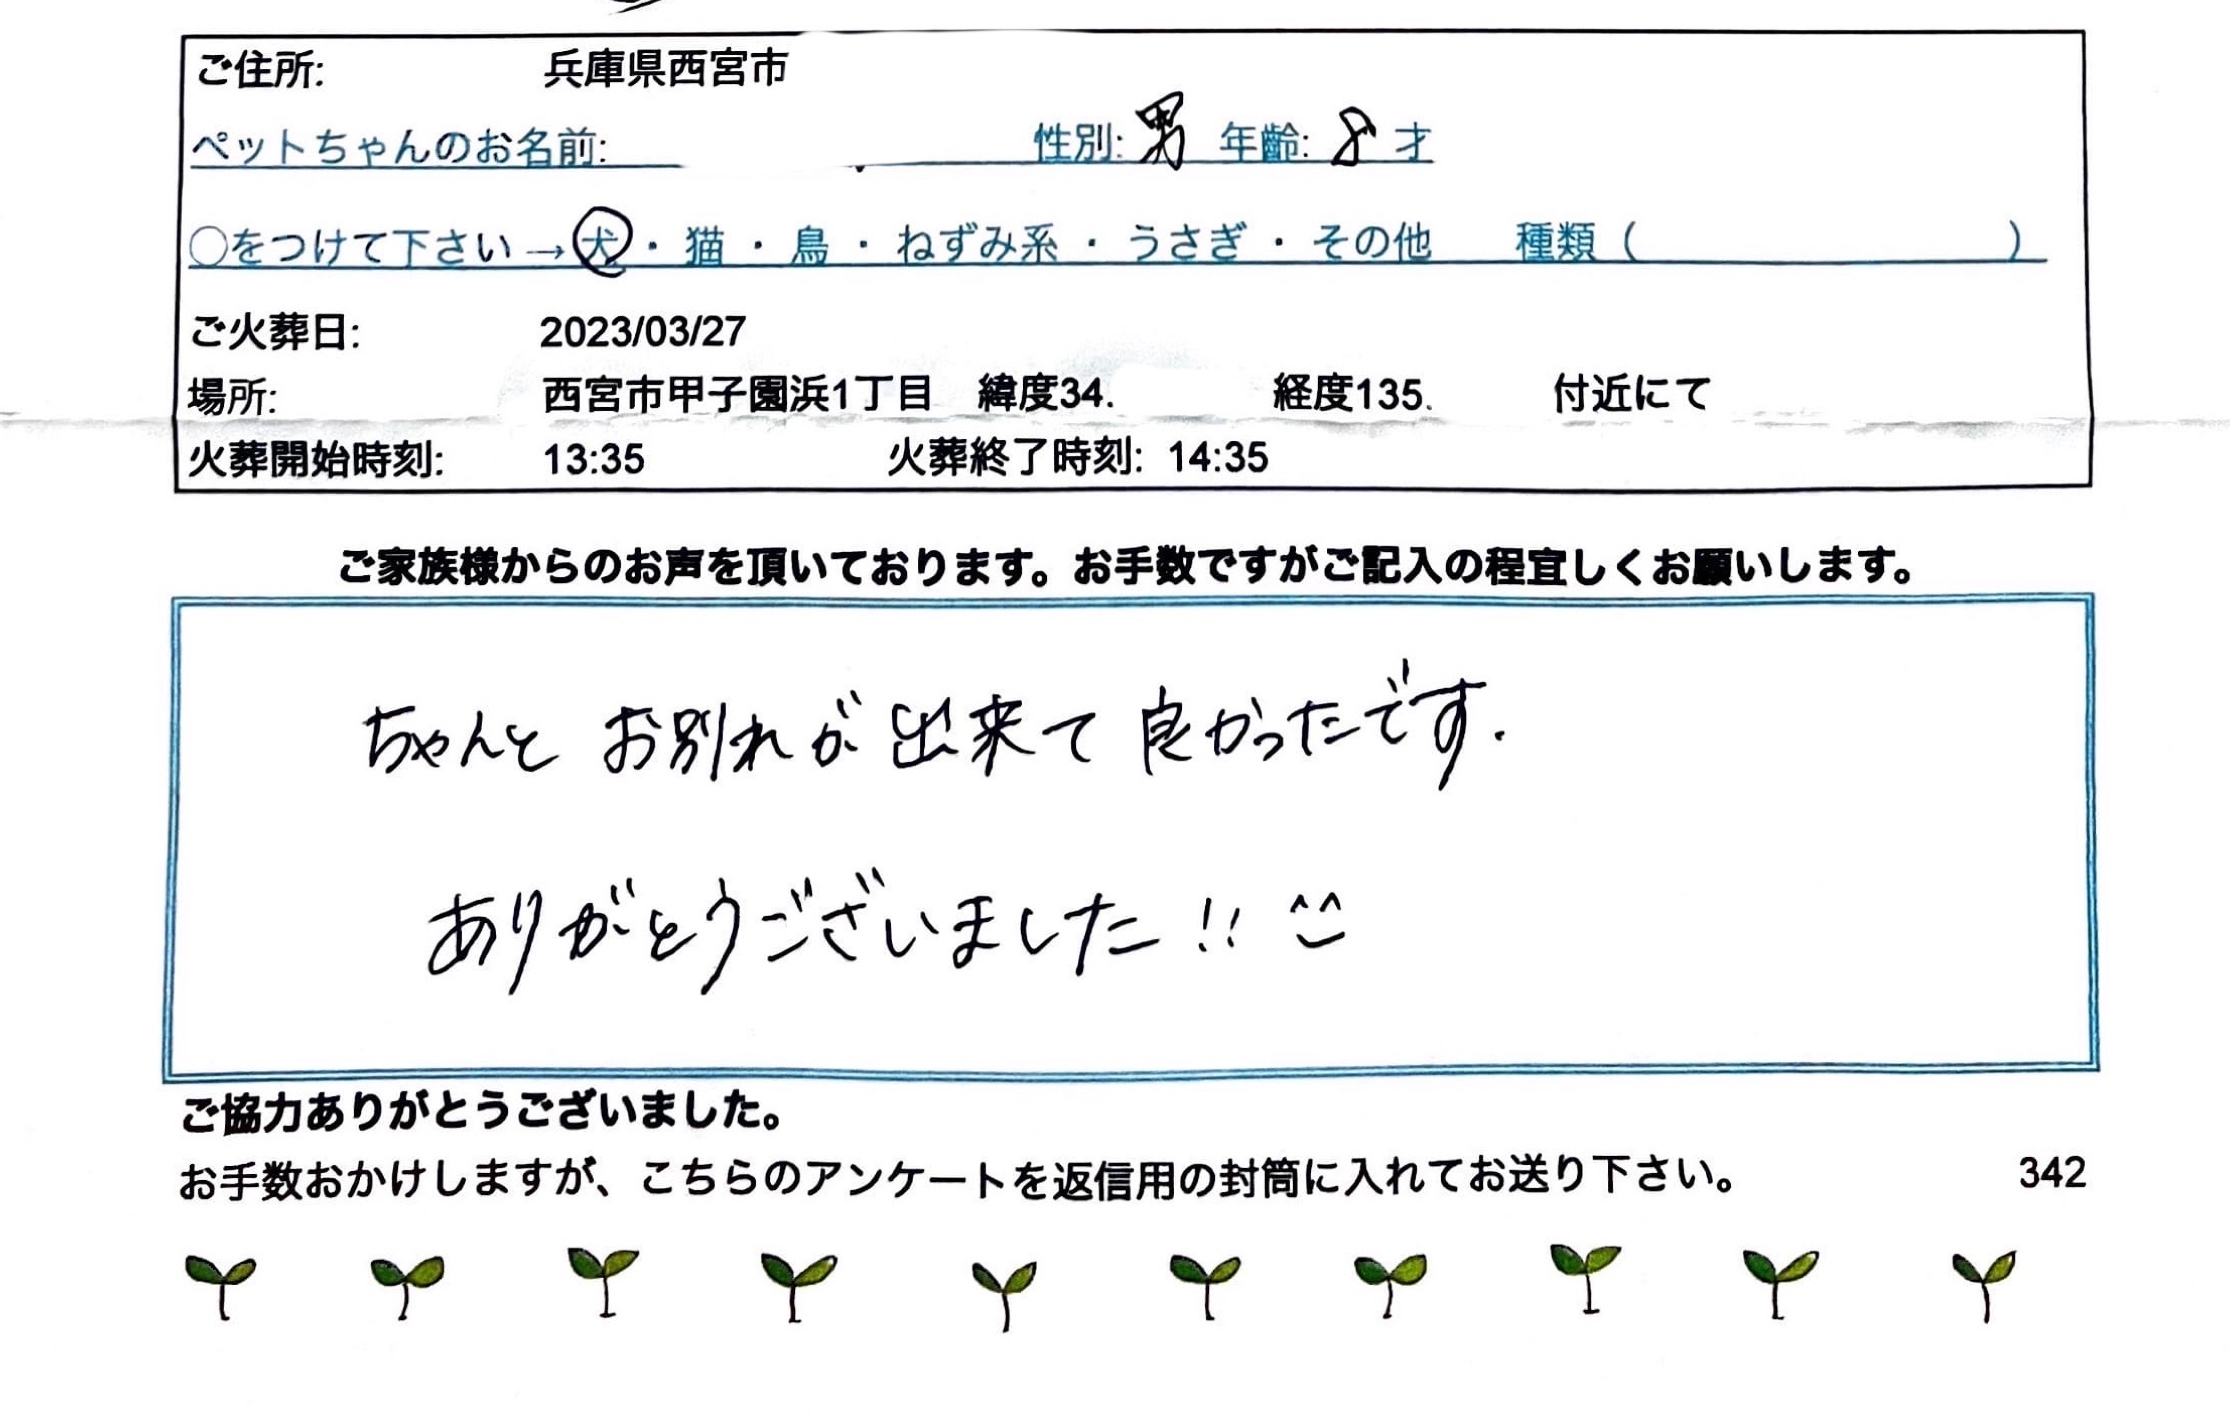 ご住所: 兵庫県西宮市
ペットちゃんのお名前: 性別: 男 年齢: 8 才
○をつけて下さい→犬・猫・鳥・ねずみ系・うさぎ・その他 種類( )
ご火葬日: 2023/03/27
場所: 西宮市甲子園浜1丁目 緯度34. 経度135. 付近にて
火葬開始時刻: 13:35 火葬終了時刻: 14:35
ご家族様からのお声を頂いております。お手数ですがご記入の程宜しくお願いします。
ちゃんとお別れが出来て良かったです.
ありがとうございました!! ^^
ご協力ありがとうございました。
お手数おかけしますが、こちらのアンケートを返信用の封筒に入れてお送り下さい。 342